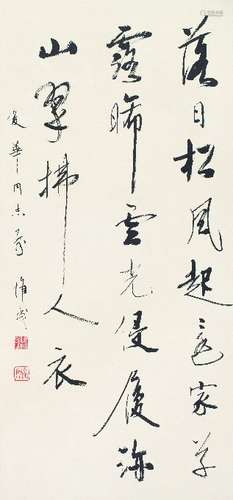 落日松風起還家草
露晞雲光侵履跡
山翠拂人衣
華同志